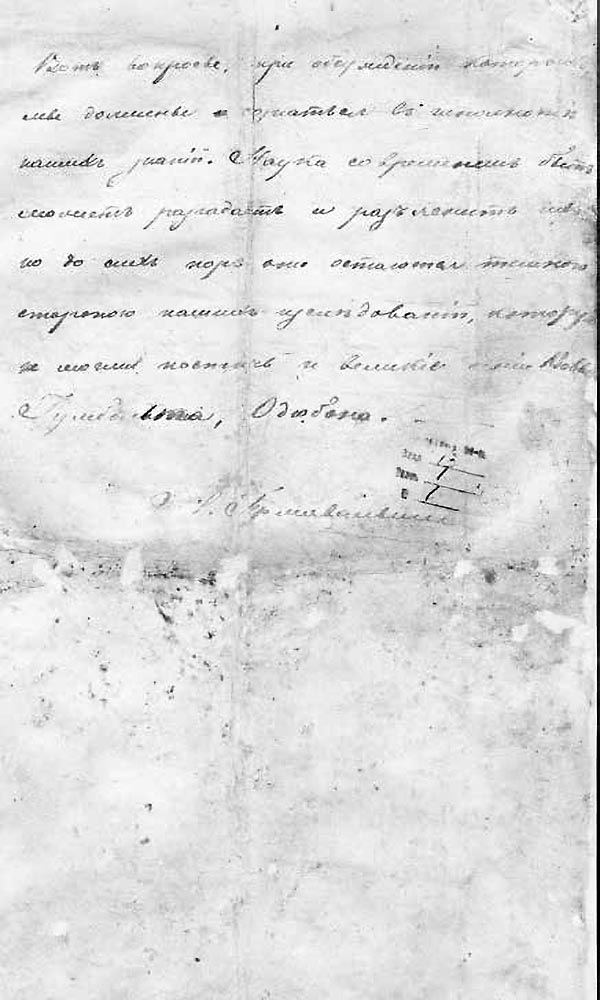 Вотъ вопросы, при обсужденіи которыхъ
мы должны сознаться въ неполнотѣ
нашихъ знаній. Наука современемъ быть
можетъ разгадаетъ и разъяснитъ
но до сихъ поръ они остаются темною
стороною нашихъ изслѣдованій, которую
не могли постичь и великіе
Гумбольта, Одюбона.